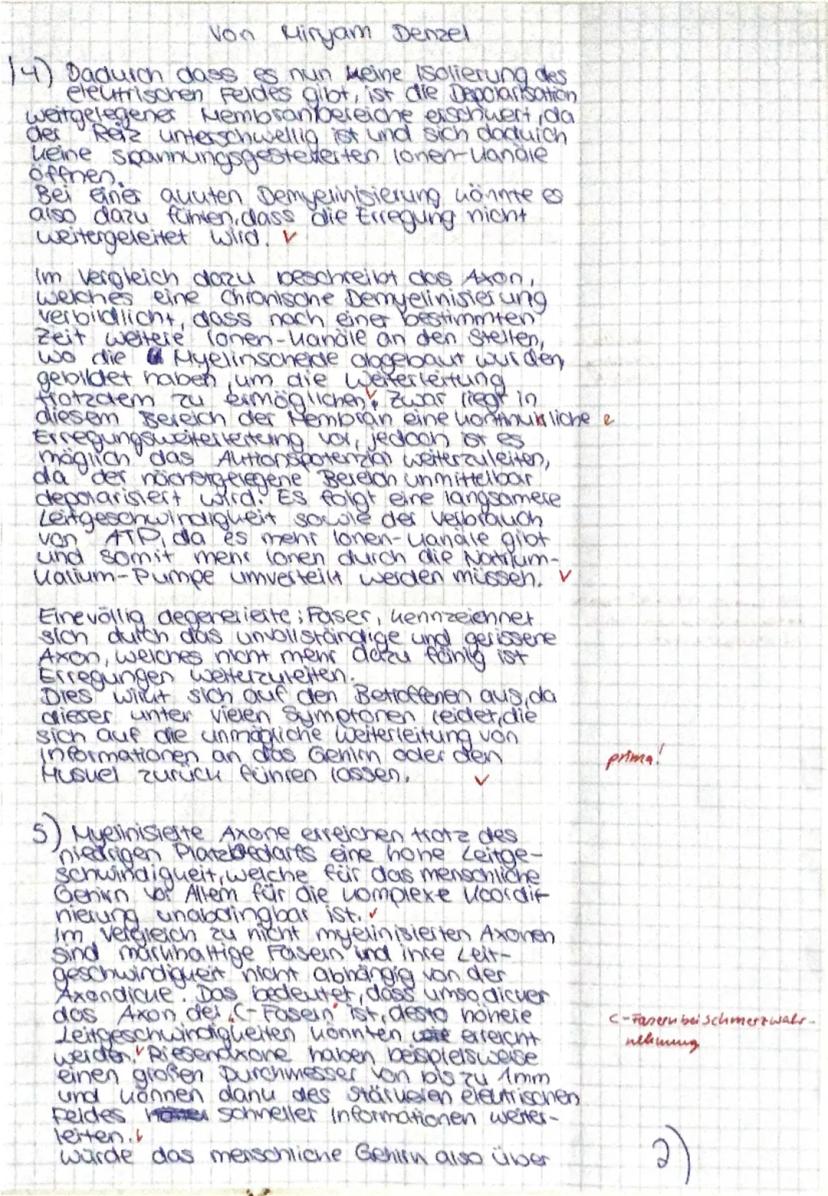 Von Miryam Denzel
4) Dadurch dass es nun keine Isolierung des
elektrischen Feldes gibt, ist die Depolarisation
weitgelegener Membranbereiche erschwert, da
der Reiz unterschwellig ist und sich dadurch
keine spannungsgesteuerten Ionen-Kanäle
öffnen.
Bei einer akuten Demyelinisierung könnte es
also dazu führen, dass die Erregung nicht
weitergeleitet wird. ✓
Im Vergleich dazu beschreibt das Axon,
welches eine chronische Demyelinisierung
verbildlicht, dass nach einer bestimmten
Zeit weitere Ionen-Kanäle an den Stellen,
wo die Myelinscheide abgebaut wurden,
gebildet haben, um die Weiterleitung
trotzdem zu ermöglichen. ✓ Zwar liegt in
diesem Bereich der Membran eine kontinuirliche e
Erregungsweiterleitung vor, jedoch ist es
möglich das Aktionspotenzial weiterzuleiten,
da der nächstgelegene Bereich unmittelbar
depolarisiert wird. Es folgt eine langsamere
Leitgeschwindigkeit sowie der Verbrauch
von ATP, da es mehr Ionen-Kanäle gibt
und somit mehr Ionen durch die Natrium-
Kalium-Pumpe umverteilt werden müssen. ✓
Eine völlig degenerierte Faser, kennzeichnet
sich durch das unvollständige und gerissene
Axon, welches nicht mehr dazu fähig ist
Erregungen weiterzuleiten.
Dies wirkt sich auf den Betroffenen aus, da
dieser unter vielen Symptonen leidet, die
sich auf die unmögliche Weiterleitung von
Informationen an das Gehirn oder den
Muskel zurück führen lassen. ✓
prima!
5) Myelinisierte Axone erreichen trotz des
niedrigen Platzbedarfs eine hohe Leitge-
schwindigkeit, welche für das menschliche
Gehirn vor Allem für die komplexe Koordi-
nierung unabdingbar ist. ✓
Im Vergleich zu nicht myelinisierten Axonen
sind markhaltige Fasern und ihre Leit-
geschwindigkeit nicht abhängig von der
Axondicke. Das bedeutet, dass umso dicker
das Axon der "C-Fasern" ist, desto höhere
Leitgeschwindigkeiten könnten erreicht
werden. ✓ Riesenaxone haben beispielsweise
einen großen Durchmesser von bis zu 1mm
und können dank des stärkeren elektrischen
Feldes schneller Informationen weiter-
leiten. ✓
Würde das menschliche Gehirn also über
C-Fasern bei Schmerzwahr-
nehmung
2)